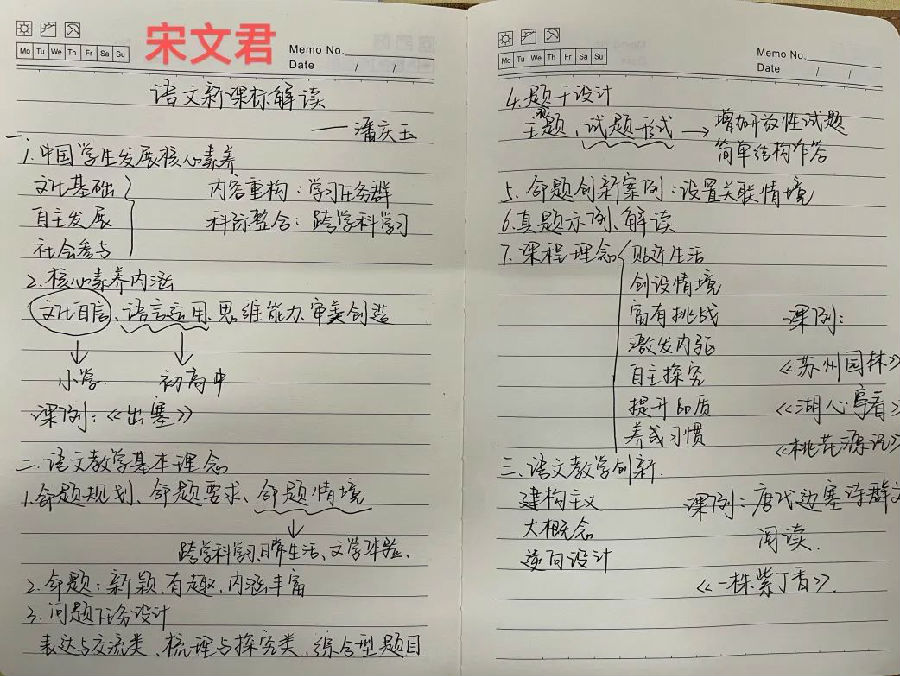 宋文君
Mo Tu We Th Fr Sa Su
Memo No.
Date / /
语文新课标解读
——潘庆玉
一
1.中国学生发展核心素养
文化基础 内容重构：学习任务群
自主发展 科际整合：跨学科学习
社会参与
2.核心素养内涵
文化自信、语言运用、思维能力、审美创造
小学 初高中
课例：《出塞》
二.语文教学基本理念
1.命题规划、命题要求、命题情境
跨学科学习、日常生活、文学体验.
2.命题：新颖、有趣、内涵丰富
3.问题任务设计
表达与交流类、梳理与探究类、综合型题目
Mo Tu We Th Fr Sa Su
Memo No.
Date / /
4.题干设计
主题、试题形式→增加开放性试题
简单结构作答
5.命题创新案例：设置关联情境
6.真题示例、解读
7.课程理念 贴近生活
创设情境
富有挑战 课例：
激发内驱 《苏州园林》
自主探究
提升品质 《湖心亭看》
养成习惯 《桃花源记》
三.语文教学创新.
建构主义 课例：唐代边塞诗群文
大概念 阅读.
逆向设计
《一株紫丁香》.